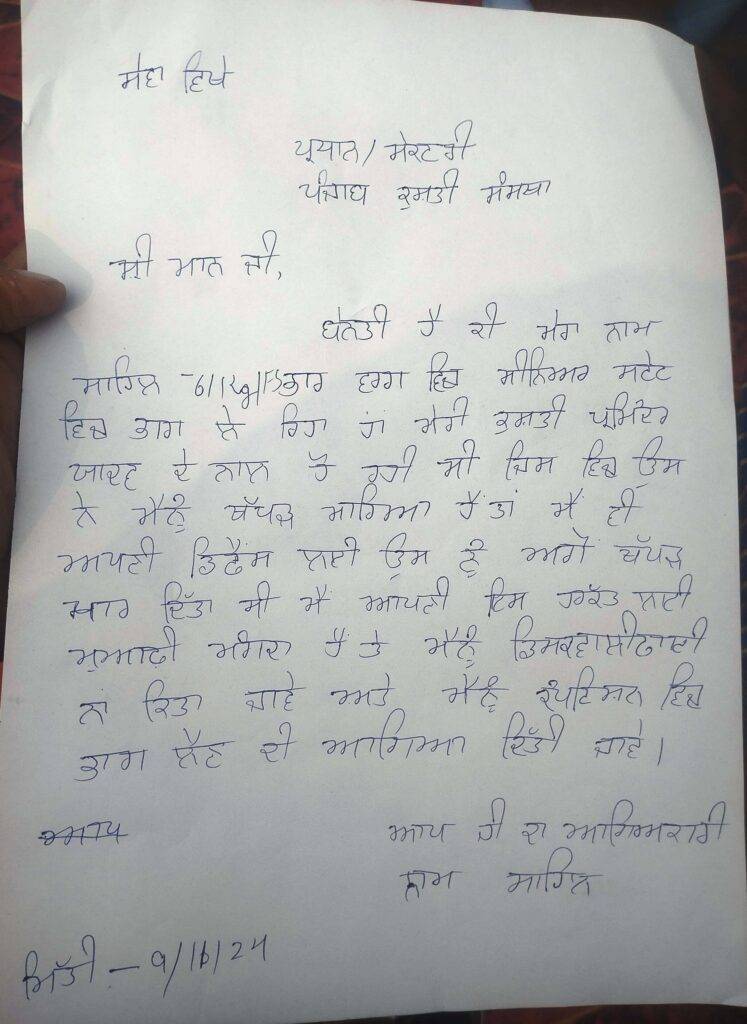 ਸੇਵਾ ਵਿਖੇ
ਪ੍ਰਧਾਨ/ਸੇਕਟਰੀ
ਪੰਜਾਬ ਕੁਸ਼ਤੀ ਸੰਸਥਾ
ਸ਼੍ਰੀ ਮਾਨ ਜੀ,
ਬੇਨਤੀ ਹੈ ਕੀ ਮੇਰਾ ਨਾਮ
ਸਾਹਿਲ ਭਾਰ ਵਰਗ ਵਿਚ ਸੀਨਿਅਰ ਸਟੇਟ
ਵਿਚ ਭਾਗ ਲੇ ਰਿਹਾ ਹਾਂ ਮੇਰੀ ਕੁਸ਼ਤੀ ਪ੍ਰਮਿੰਦਰ
ਯਾਦਵ ਦੇ ਨਾਲ ਹੋ ਰਹੀ ਸੀ ਜਿਸ ਵਿਚ ਉਸ
ਨੇ ਮੈਨੂੰ ਥੱਪੜ ਮਾਰਿਆ ਹੈਂ ਤਾਂ ਮੈਂ ਵੀ
ਆਪਣੀ ਡਿਫੈਂਸ ਲਈ ਉਸ ਨੂੰ ਅਗੋਂ ਥੱਪੜ
ਮਾਰ ਦਿੱਤਾ ਸੀ ਮੈਂ ਆਪਣੀ ਇਸ ਹਰੱਕਤ ਲਈ
ਮੁਆਫ਼ੀ ਮੰਗਦਾ ਹੈਂ ਤੇ ਮੈਨੂੰ
ਨਾਂ ਕਿਤਾ ਜਾਵੇ ਅਤੇ ਮੈਨੂੰ ਕੰਪਟਿਸ਼ਨ ਵਿਚ
ਭਾਗ ਲੈਣ ਦੀ ਆਗਿਆ ਦਿੱਤੀ ਜਾਵੇ।
ਆਪ ਜੀ ਦਾ ਆਗਿਅਕਾਰੀ
ਨਾਮ ਸਾਹਿਲ
ਮਿੱਤੀ - 9/10/24